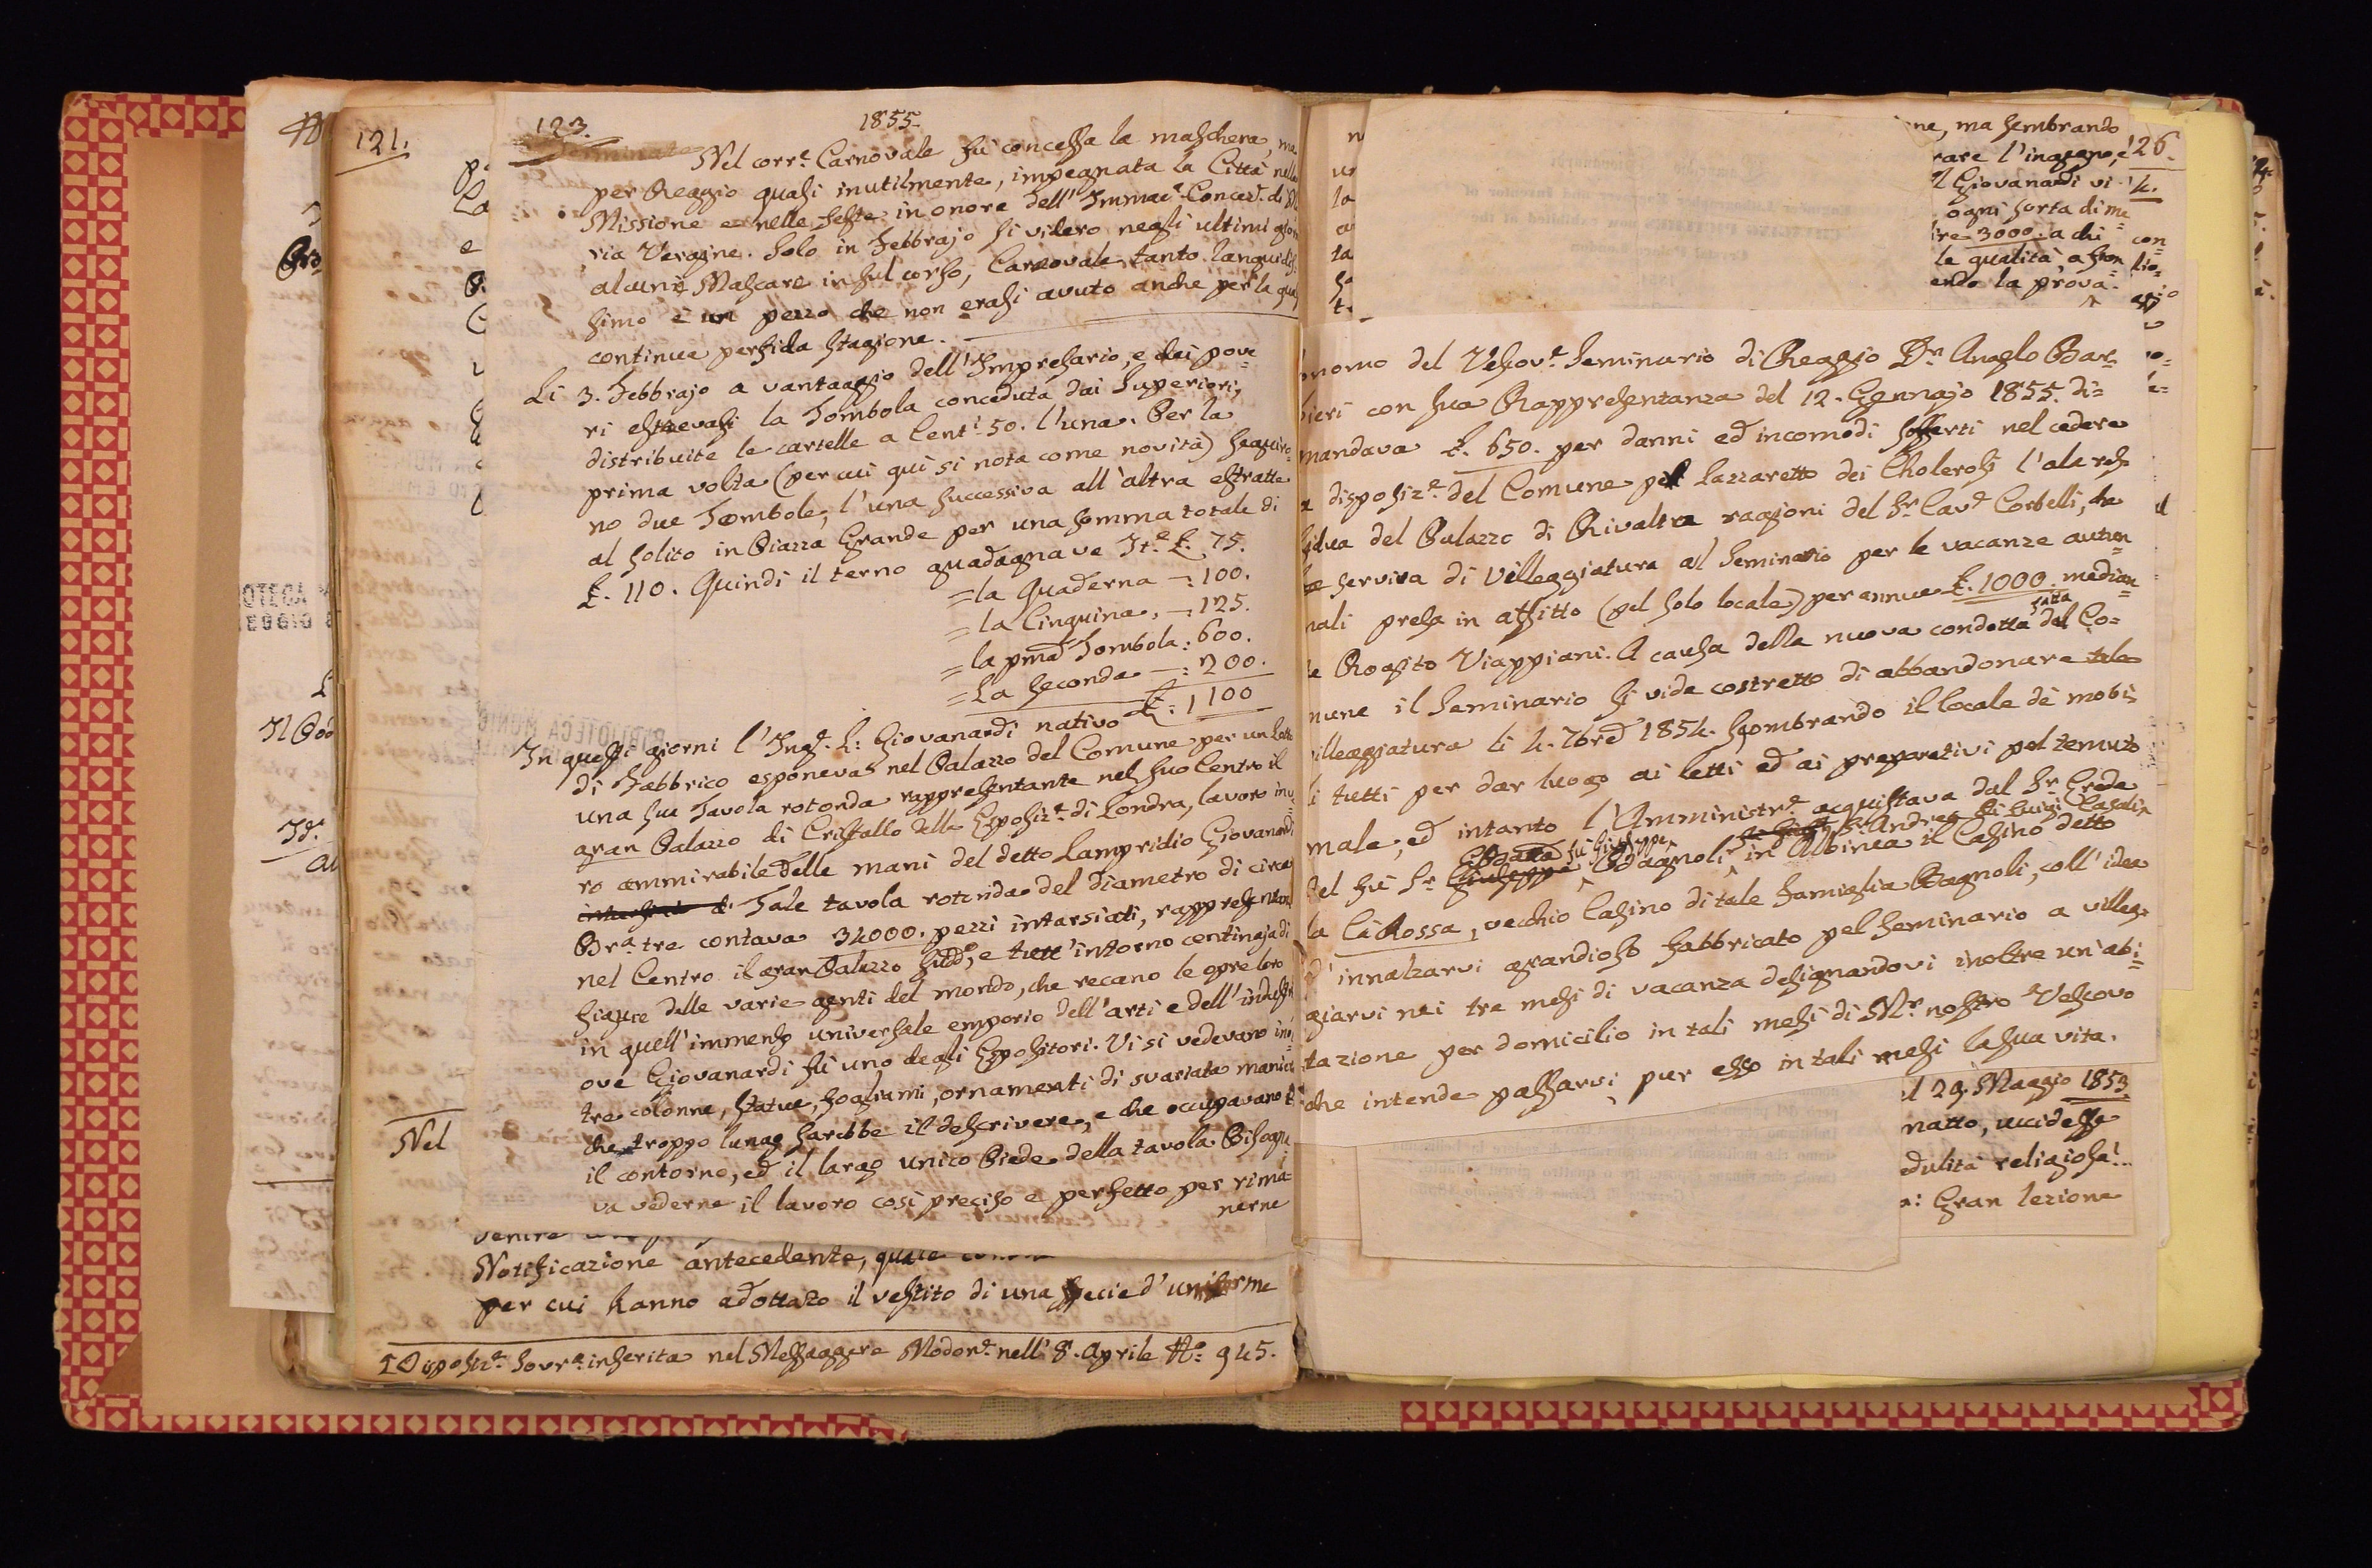 121.
123.
1855.
Nel corr.e Carnovale fù concessa la maschera, ma
per Reggio quasi inutilmente, impegnata la Città nella
Missione e nelle feste in onore dell'Immac.a Concez.e di
ria Vergine. Solo in Febbrajo si videro negli ultimi
alcune Mascare in sul corso, Carnovale tanto
simo è un pezzo che non erasi avuto anche per la
continua perfida stagione.
Li 3. Febbrajo a vantaggio dell'Impresario, e dei pove
ri estrevasi la Tombola conceduta dai Superiori,
distribuite le cartelle a Cent.i 50. l'una. Per la
prima volta (per cui qui si nota come novità) seguiro=
no due Tombole, l'una successiva all'altra estratte
al solito in Piazza Grande per una somma totale di
£. 110. Quindi il terno guadagnava It.e £. 75.
= la Quaderna —: 100.
= la Cinquina, —: 125.
= la pma Tombola: 600.
= La seconda —: 200.
£: 1100
In questi giorni l'Ing.e L: Giovanardi nativo
di Fabbrico esponeva nel Palazzo del Comune per un
una sua Tavola rotonda rappresentante nel suo Centro il
gran Palazzo di Cristallo della Esposiz.e di Londra, lavoro
ro ammirabile delle mani del detto Lampridio Giovanardi
Tale tavola rotonda del diametro di circa
Br.a tre contava 34000. pezzi intarsiati,
nel Centro il gran Palazzo sudd.o, e tutt'intorno centinaja di
figure delle varie genti del mondo, che recano le opre loro
in quell'immenso universale emporio dell'arti e dell'
ove Giovanardi fù uno degli Espositori. Vi si vedevano
tre colonne, statue, fogliami, ornamenti di svariata
che troppo lungo sarebbe il descrivere, e che occupavano
il contorno, ed il largo unico Piede della tavola. Bisogna
va vederne il lavoro così preciso e perfetto per rima=
nerne
Nel
Notificazione antecedente, quale
per cui hanno adottato il vestito di una specie d'uniforme
Disposiz.e Sovr.a inserita nel Messaggere Modon.e nell' 8. Aprile N.o 945.
ne, ma sembrando
rare l'ingegno, e
126.
l Giovanardi vi
4.
ogni sorta di me
ire 3000. a chi
con=
le qualità a fron
endo la prova.
onomo del Vescov.e Seminario di Reggio D.n Anglo Bar=
bieri con sua Rappresentanza del 12. Gennajo 1855. di=
mandava £. 650. per danni ed incomodi sofferti nel cedere
a disposiz.e del Comune pel Lazzaretto dei Cholerosi l'ala
sidua del Palazzo di Rivaltra ragioni del S.r Cav.e Corbelli, che
serviva di Villeggiatura al Seminario per le vacanze autun
nali presa in affitto (pel solo locale) per annue £. 1000. median=
te Rogito Viappiani. A causa della nuova condotta fatta dal Co=
mune il Seminario si vide costretto di abbandonare tale
illeggiatura li 4. 7bre 1854. sgombrando il locale de mobi=
li tutti per dar luogo ai letti ed ai preparativi pel temuto
male, ed intanto l'Amministr.e acquistava dal S.r Erede
S.r Andrea di Luigi Casali
del fù S.r Giuseppe fù Giuseppe Bagnoli in Albinea il Casino detto
la Cà Rossa, vecchio Casino di tale famiglia Bagnoli, coll'idea
d'innalzarvi grandioso fabbricato pel Seminario a villeg=
giarvi nei tre mesi di vacanza designandovi inoltre un'abi=
tazione per domicilio in tali mesi di M.r nostro Vescovo
che intende passarvi pur esso in tali mesi la sua vita.
l 29. Maggio 1853
matto, uccidesse
edulità religiosa!..
a: Gran lezione